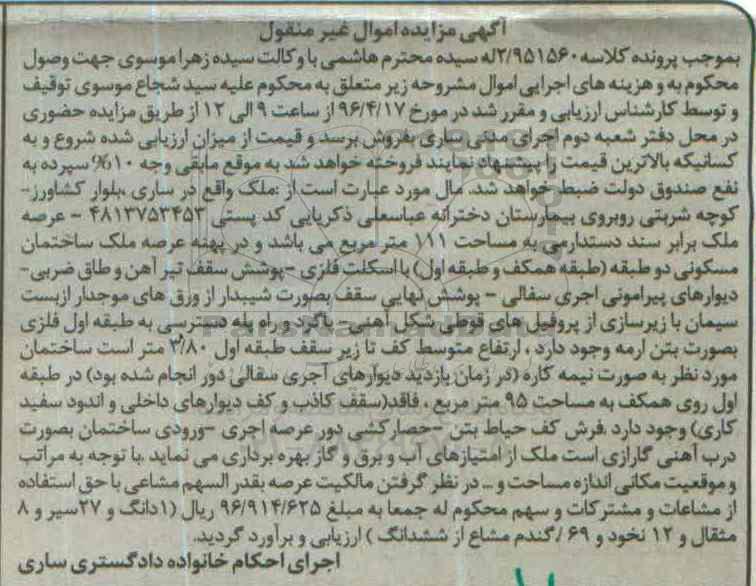 آگهی مزایده اموال غیر منقول
بموجب پرونده کلاسه ۲/۹۵۱۵۶۰ له سیده محترم هاشمی با وکالت سیده زهرا موسوی جهت وصول
محکوم به و هزینه های اجرایی اموال مشروحه زیر متعلق به محکوم علیه سید شجاع موسوی توقیف
و توسط کارشناس ارزیابی و مقرر شد در مورخ ۹۶/۴/۱۷ از ساعت ۹ الی ۱۲ از طریق مزایده حضوری
در محل دفتر شعبه دوم اجرای مدنی ساری بفروش برسد و قیمت از میزان ارزیابی شده شروع و به
کسانیکه بالاترین قیمت را پیشنهاد نمایند فروخته خواهد شد به موقع مابقی وجه ۱۰٪ سپرده به
نفع صندوق دولت ضبط خواهد شد. مال مورد عبارت است از :ملک واقع در ساری ،بلوار کشاورز-
کوچه شربتی روبروی بیمارستان دخترانه عباسعلی ذکریایی کد پستی ۴۸۱۳۷۵۳۴۵۳ - عرصه
ملک برابر سند دستدارمی به مساحت ۱۱۱ متر مربع می باشد و در پهنه عرصه ملک ساختمان
مسکونی دو طبقه (طبقه همکف و طبقه اول) با اسکلت فلزی -پوشش سقف تیر آهن و طاق ضربی-
دیوارهای پیرامونی اجری سفالی - پوشش نهایی سقف بصورت شیبدار از ورق های موجدار ازبست
سیمان با زیرسازی از پروفیل های قوطی شکل آهنی- باگرد و راه پله دسترسی به طبقه اول فلزی
بصورت بتن ارمه وجود دارد ، ارتفاع متوسط کف تا زیر سقف طبقه اول ۳/۸۰ متر است ساختمان
مورد نظر به صورت نیمه کاره (در زمان بازدید دیوارهای آجری سفالی دور انجام شده بود) در طبقه
اول روی همکف به مساحت ۹۵ متر مربع ، فاقد(سقف کاذب و کف دیوارهای داخلی و اندود سفید
کاری) وجود دارد .فرش کف حیاط بتن -حصارکشی دور عرصه اجری -ورودی ساختمان بصورت
درب آهنی گاراژی است ملک از امتیازهای آب و برق و گاز بهره برداری می نماید .با توجه به مراتب
و موقعیت مکانی اندازه مساحت و ... در نظر گرفتن مالکیت عرصه بقدر السهم مشاعی با حق استفاده
از مشاعات و مشترکات و سهم محکوم له جمعا به مبلغ ۹۶/۹۱۴/۶۲۵ ریال (۱دانگ و ۲۷سیر و ۸
مثقال و ۱۲ نخود و ۶۹ /گندم مشاع از ششدانگ ) ارزیابی و برآورد گردید.
اجرای احکام خانواده دادگستری ساری